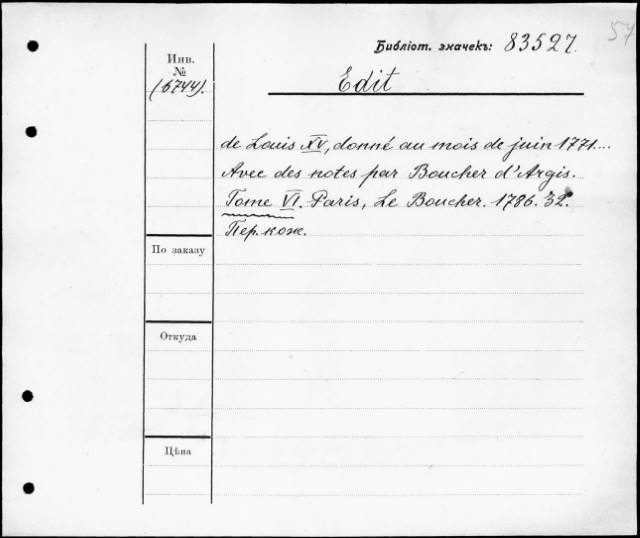 57
Библіот. значекъ: 83527.
Инв.
№
(6744).
Edit
de Louis XV, donné au mois de juin 1771....
Avec des notes par Boucher d'Argis.
Tome VI. Paris, Le Boucher. 1786. 32.°
Пер. кож.
По заказу
Откуда
Цѣна